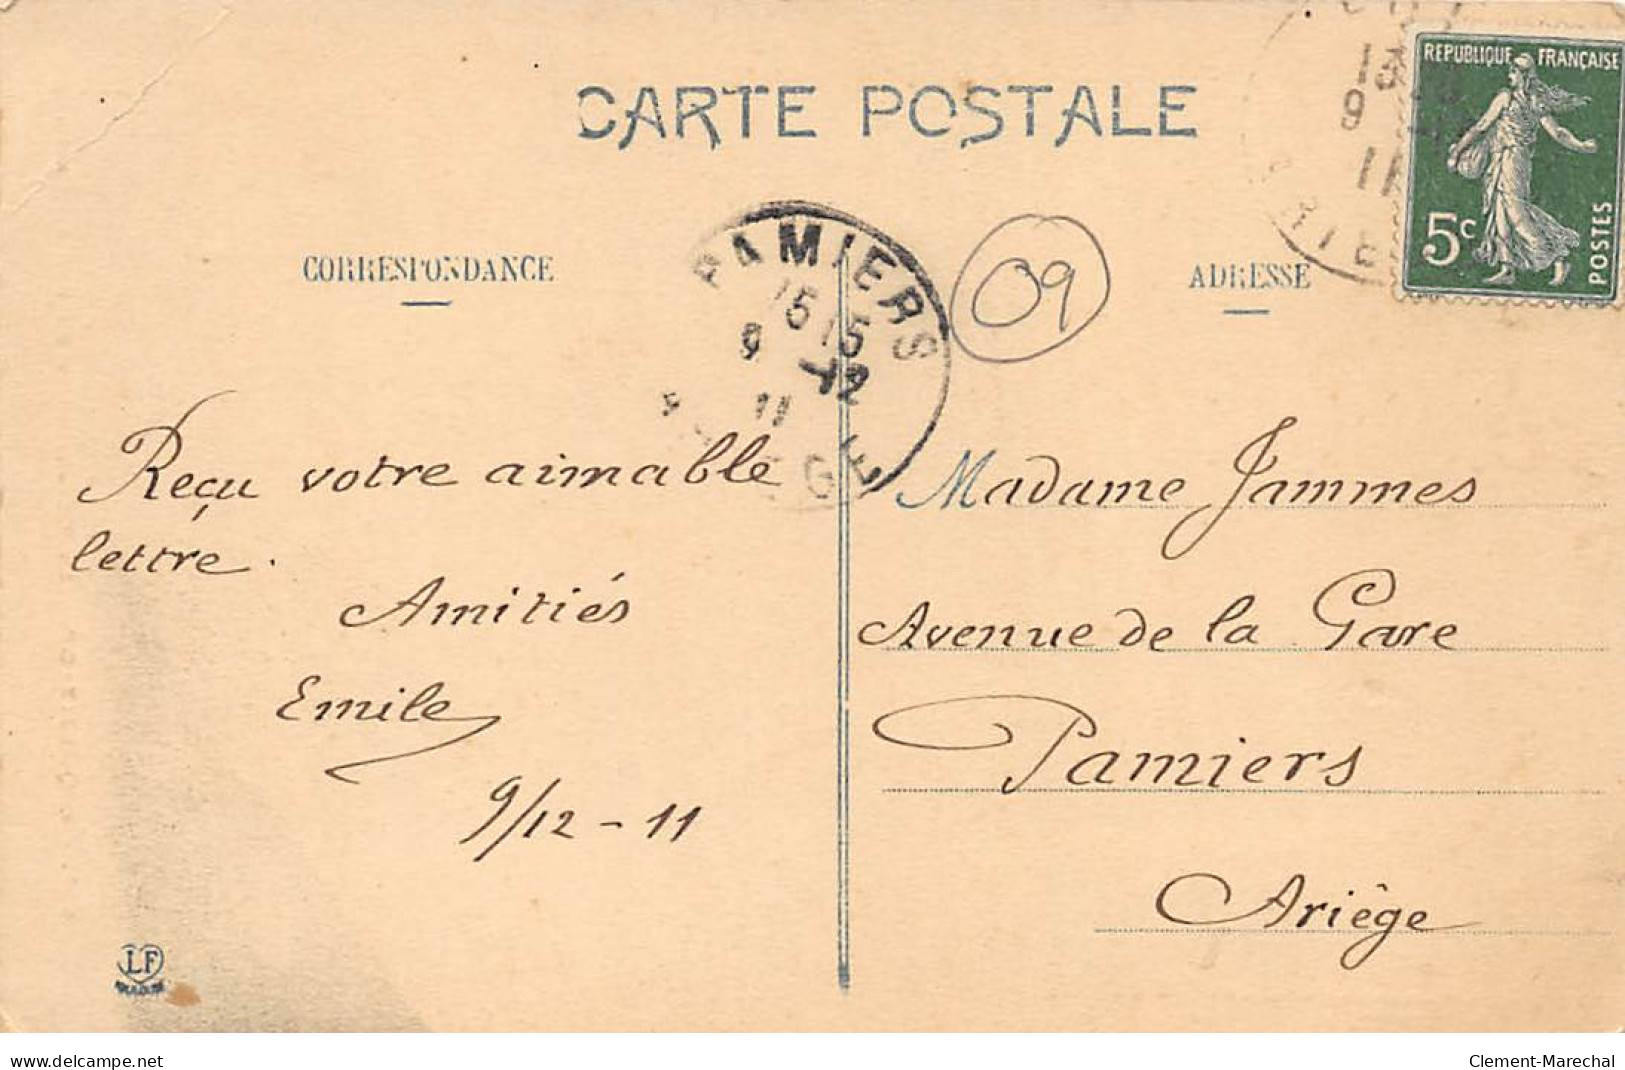 CARTE POSTALE
REPUBLIQUE FRANÇAISE
5c
POSTES
19
9
11
CORRESPONDANCE
ADRESSE
PAMIERS
15 15
9 -12
11
09
Reçu votre aimable
lettre.
Amitiés
Emile
9/12-11
Madame Jammes
Avenue de la Gare
Pamiers
Ariège
LF
www.delcampe.net
Clement-Marechal